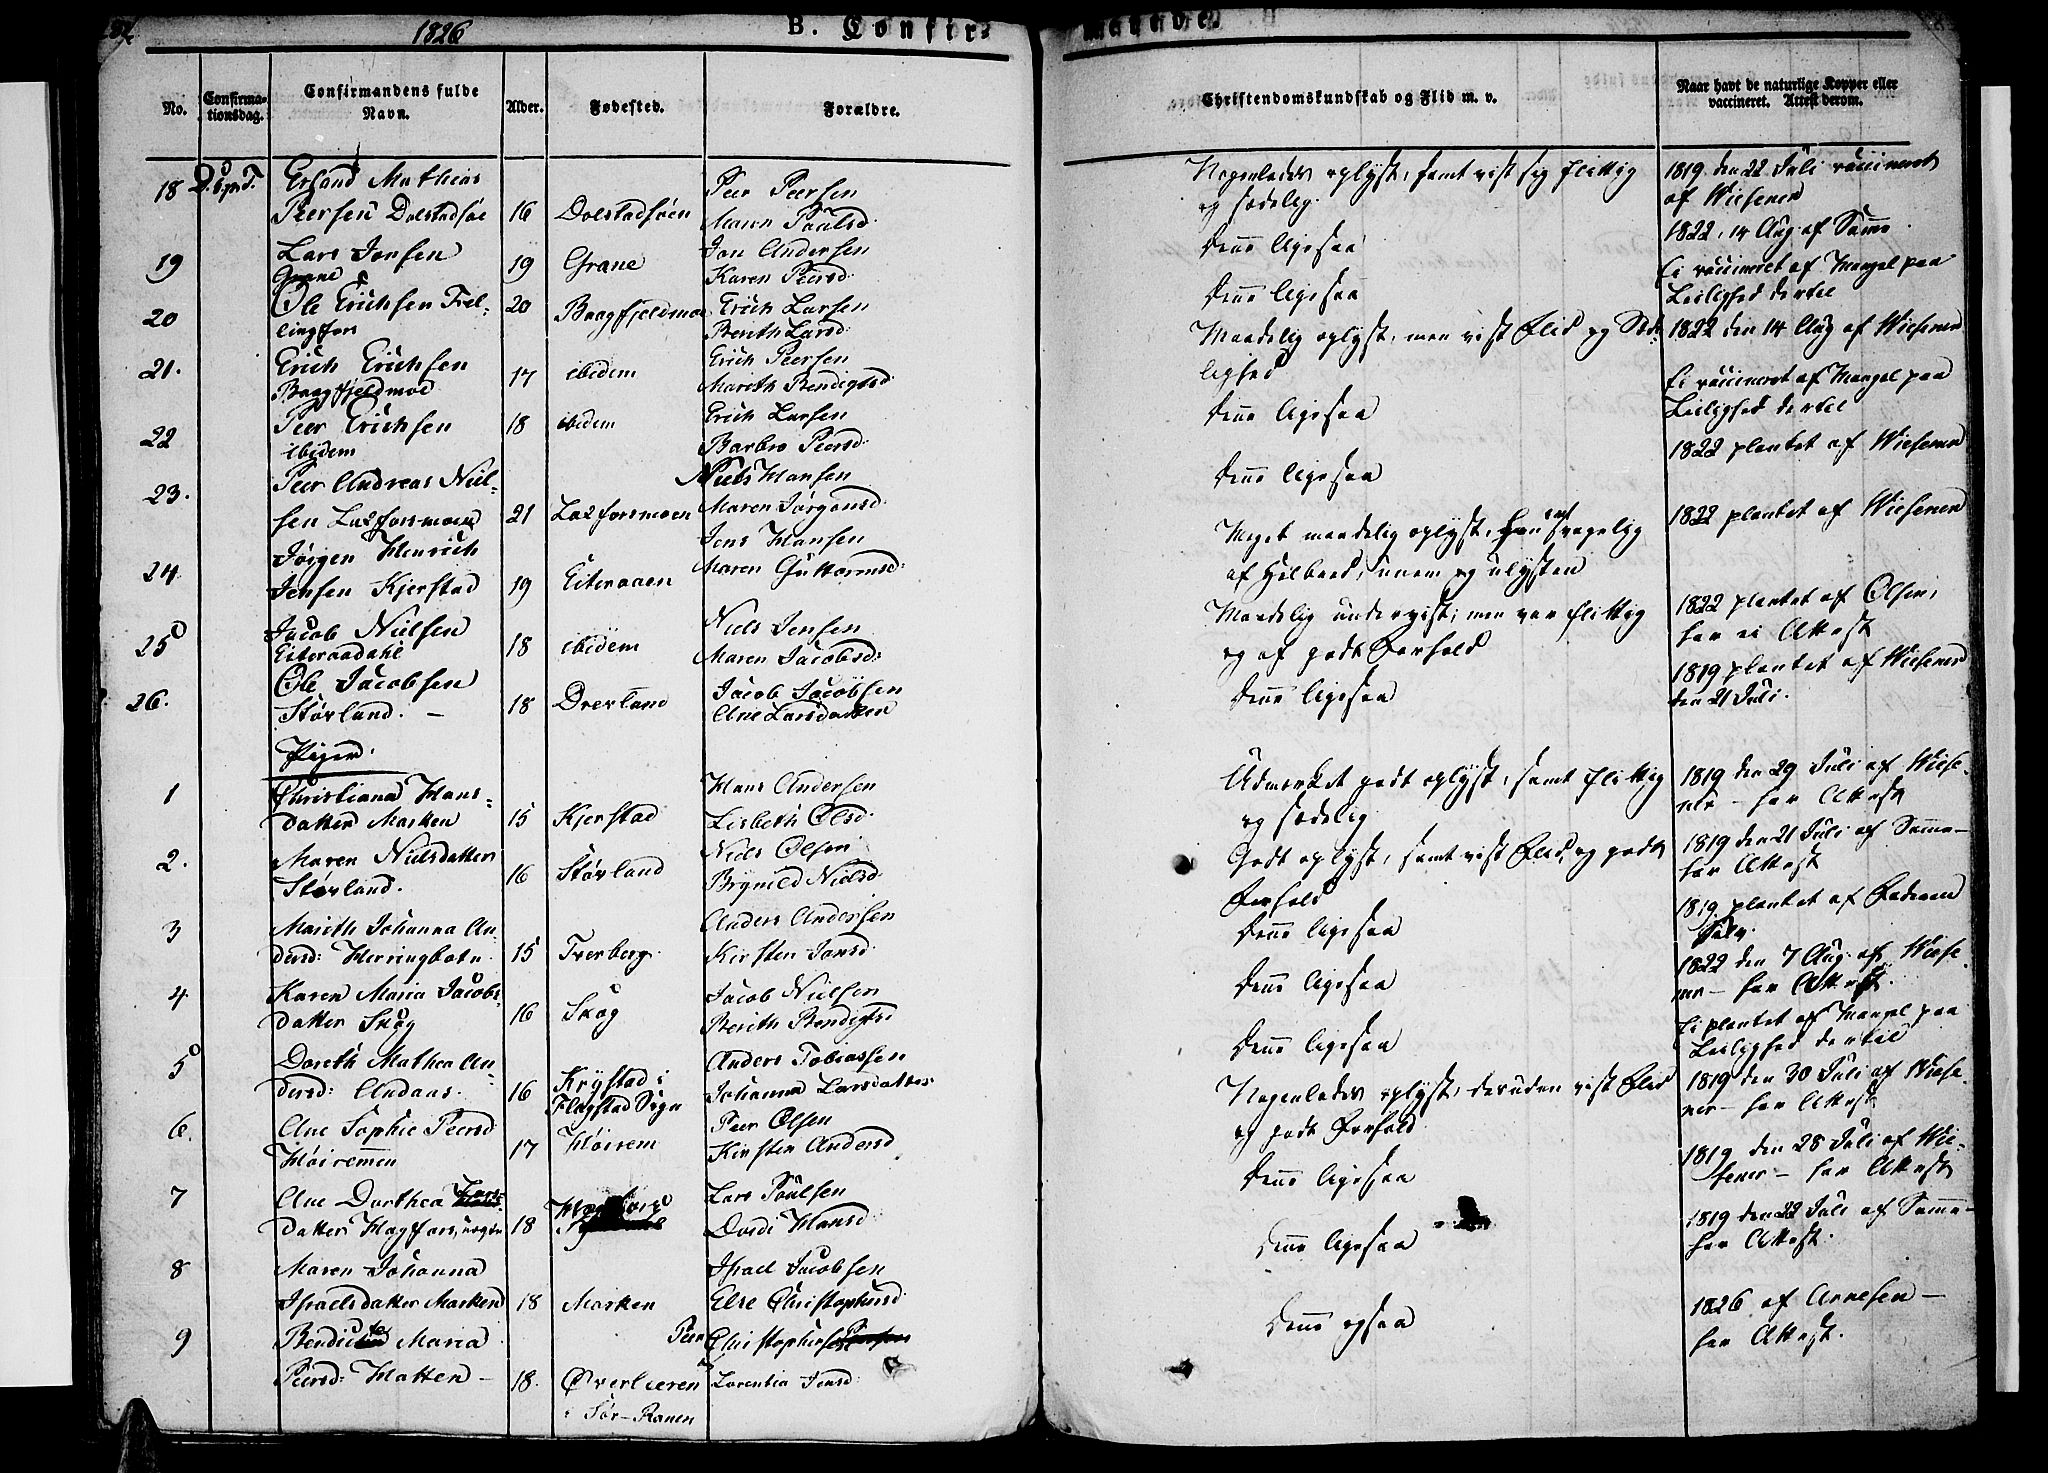 1826
B. Confir-
mande
No.
Confirma-
tionsdag.
Confirmandens fulde
Navn.
Alder.
Fødested.
Forældre.
Christendomskundskab og Flid m. v.
Naar havt de naturlige Kopper eller
vaccineret. Attest derom.
18 Mathias
Peersen Dolstadsøe 16 Dolstadsøen
Peer Peersen
Maren Paalsd:
Nogenledes oplyst, samt vist sig flittig
og sædelig.
1819 den 22 Juli vaccineret
af Wiesener
19 Lars Jonsen
Grane
19 Grane
Jon Andersen
Karen Peersd:
Denne ligesaa
1822, 14 Aug af Samme
20 Ole Erichsen
20 Baagfjeldmoe
Erich Larsen
Berith Larsd:
Denne ligesaa
Ei vaccineret af Mangel paa
Leilighed dertil
21. Erich Erichsen
Baagfjeldmoe
17 ibidem
Erich Peersen
Mareth Bendigtsd:
Maadelig oplyst, men vist Flid og Sæde-
lighed
1822 den 14 Aug af Wiesener
22 Peer Erichsen
ibidem
18 ibidem
Erich Larsen
Barbro Peersd:
Denne ligesaa
Ei vaccineret af Mangel paa
Leilighed dertil
23. Peer Andreas Niel-
sen Laxforsmoen 21 Laxforsmoen
Niels Hansen
Maren Jørgensd:
Denne ligesaa
1822 plantet af Wiesener
24 Jørgen Henrich
Jensen Kjerstad 19 Eiteraaen
Jens Hansen
Maren Guttormsd:
Meget maadelig oplyst, svagelig
af Helbred, og ulysten
1822 plantet af Wiesener
25 Jacob Nielsen
Eiteraadahl
18 ibidem
Niels Jensen
Maren Jacobsd:
Maadelig undervist; men var flittig
og af godt Forhold
1822 plantet af Olsen,
har ei Attest
26. Ole Jacobsen
Størland. —
18 Drevland
Jacob Jacobsen
Ane Larsdatter
Denne ligesaa
1819 plantet af Wiesener
den 21 Juli.
Piger
1 Christiana Hans-
datter Marken 15 Kjerstad
Hans Andersen
Lisbeth Olsd:
Udmærket godt oplyst, samt flittig
og sædelig
1819 den 29 Juli af Wiese-
ner — har Attest
2. Maren Nielsdatter
Størland.
16 Størland
Niels Olsen
Brynild Nielsd:
Godt oplyst, samt vist Flid, og godt
Forhold
1819 den 21 Juli af Samme —
har Attest
3 Marith Johanna An-
dersd: Herringbotn 15 Tverberg.
Anders Andersen
Kirsten Jonsd:
Denne ligesaa
1819 plantet af Faderen
Selv.
4 Karen Maria Jacobs-
datter Skog
16 Skog
Jacob Nielsen
Berith Bendigtsd
Denne ligesaa
1822 den 7 Aug. af Wiese-
ner — har Attest.
5 Dorth Mathea An-
dersd: Andaas.
16 Krystad i
Flagstad Sogn
Anders Tobiassen
Johanna Larsdatter
Denne ligesaa
Ei plantet af Mangel paa
Leilighed dertil
6. Ane Sophie Peersd
Høiremmen
17 Høirem
Peer Olsen
Kirsten Andersd
Nogenledes oplyst, desuden vist Flid
og godt Forhold
1819 den 30 Juli af Wiese-
ner — har Attest
7 Ane Dorthea Lars
datter Hagfors 18
Lars Poulsen
Dordi Hansd:
Denne ligesaa
1819 den 28 Juli af Wie-
sener — har Attest
8 Maren Johanna
Israelsdatter Marken 18 Marken
Israel Jacobsen
Else Christophersd:
Denne ligesaa
1819 den 22 Juli af Samme —
har Attest.
9 Maria
Peersd: Hatten — 18. Øverlieren
i Sør-Ranen
Peer Christophersen
Lorentia Jensd:
Denne ogsaa
1826 af Arnesen —
har Attest.